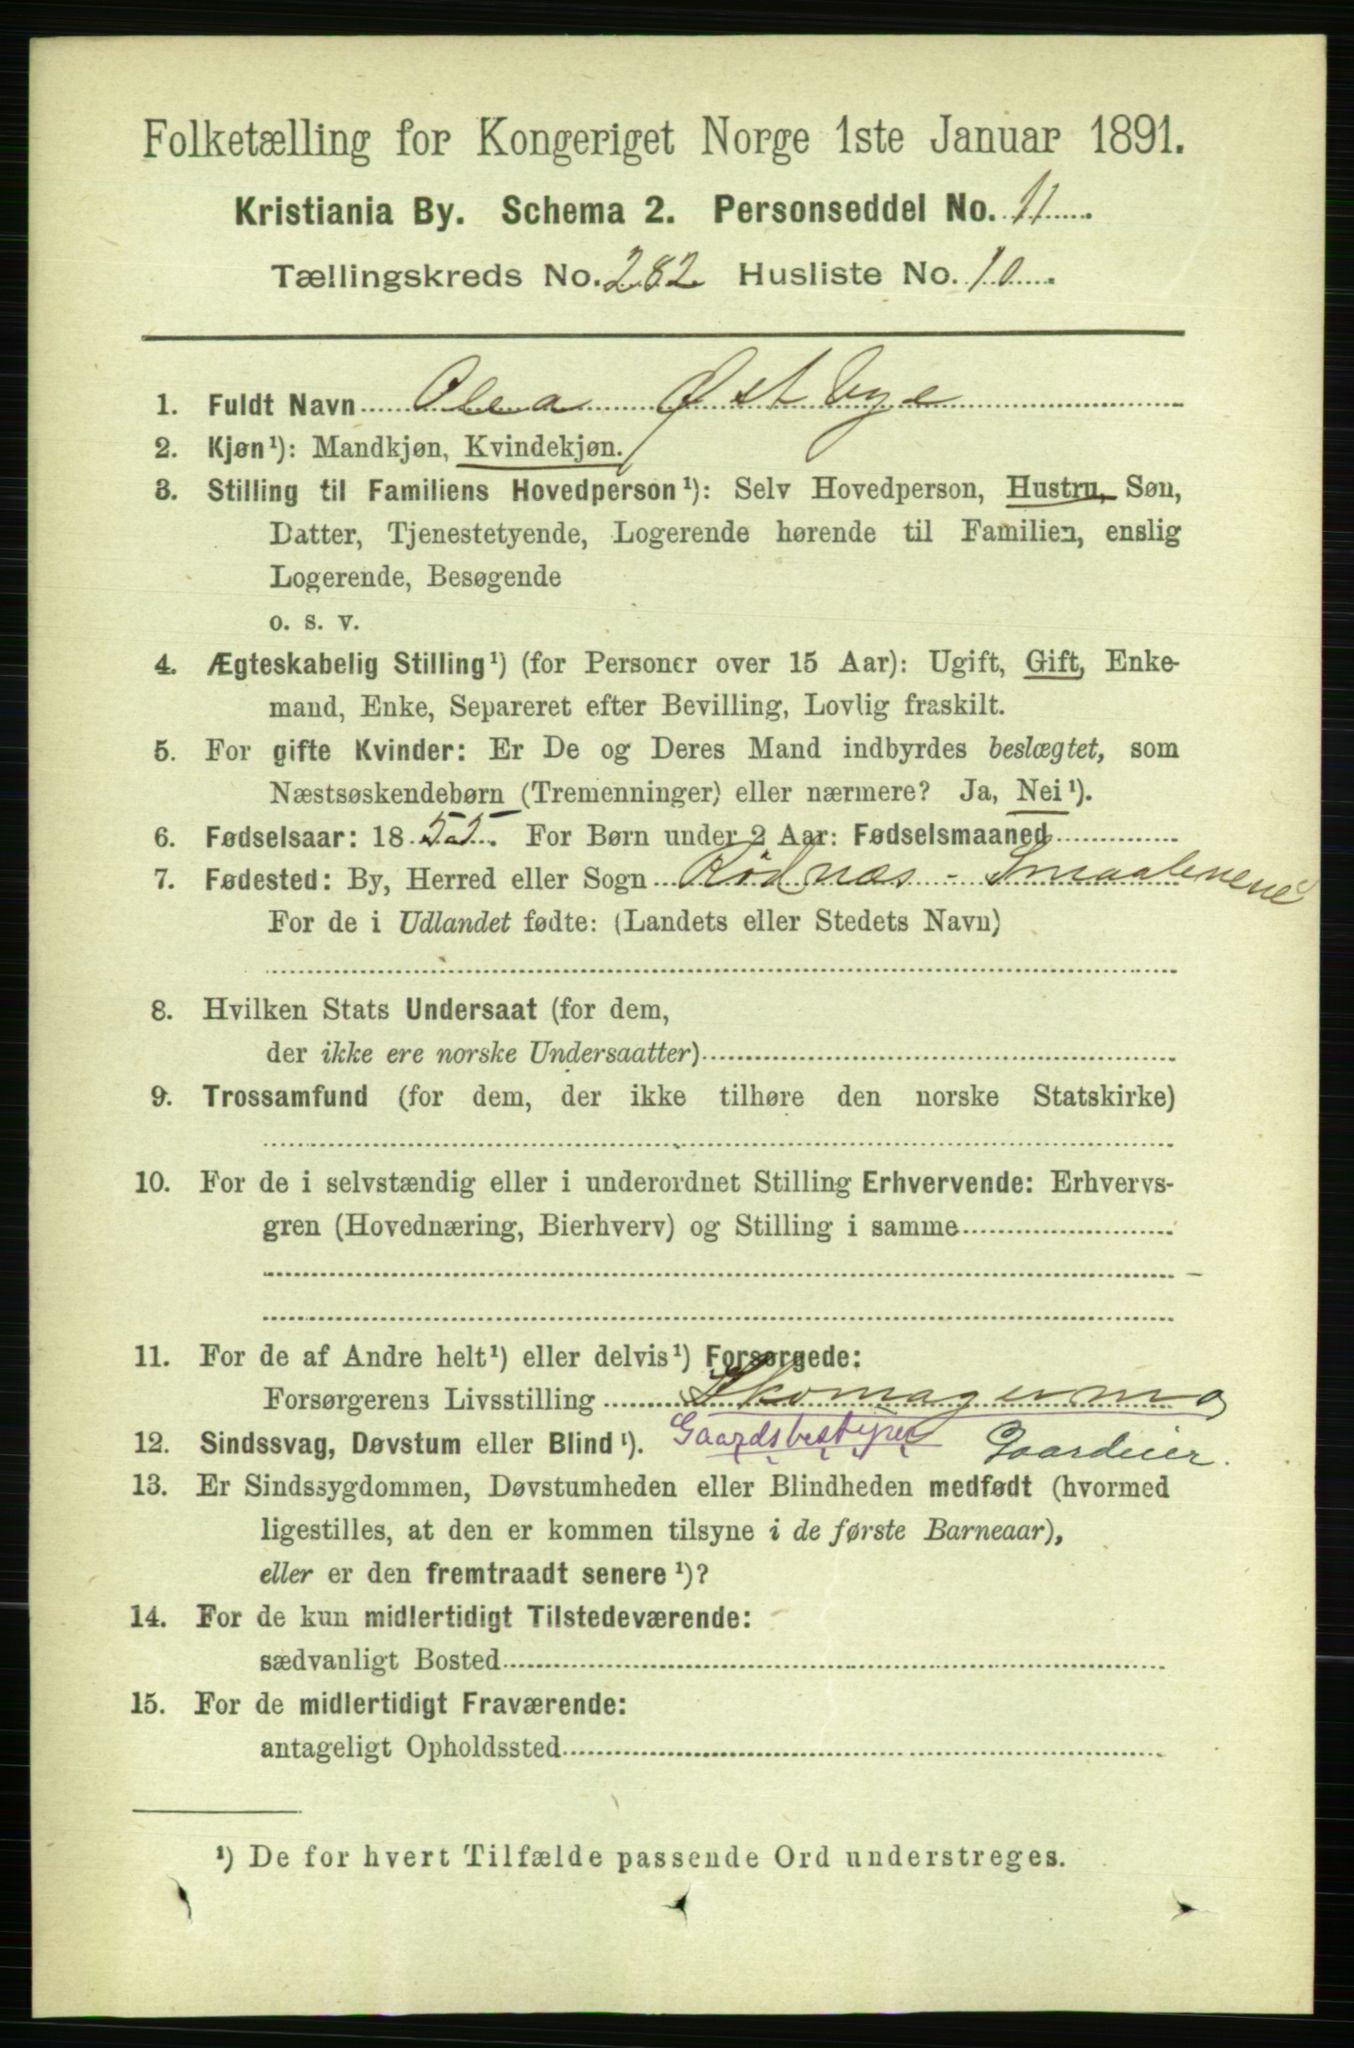 Folketælling for Kongeriget Norge 1ste Januar 1891.
Kristiania By. Schema 2. Personseddel No. 11
Tællingskreds No. 282 Husliste No. 10
1. Fuldt Navn Olea Østbye
2. Kjøn¹): Mandkjøn, Kvindekjøn.
3. Stilling til Familiens Hovedperson¹): Selv Hovedperson, Hustru, Søn,
Datter, Tjenestetyende, Logerende hørende til Familien, enslig
Logerende, Besøgende
o. s. v.
4. Ægteskabelig Stilling¹) (for Personer over 15 Aar): Ugift, Gift, Enke-
mand, Enke, Separeret efter Bevilling, Lovlig fraskilt.
5. For gifte Kvinder: Er De og Deres Mand indbyrdes beslægtet, som
Næstsøskendebørn (Tremenninger) eller nærmere? Ja, Nei¹).
6. Fødselsaar: 1855. For Børn under 2 Aar: Fødselsmaaned
7. Fødested: By, Herred eller Sogn Rødnæs - Smaalenene
For de i Udlandet fødte: (Landets eller Stedets Navn)
8. Hvilken Stats Undersaat (for dem,
der ikke ere norske Undersaatter)
9. Trossamfund (for dem, der ikke tilhøre den norske Statskirke)
10. For de i selvstændig eller i underordnet Stilling Erhvervende: Erhvervs-
gren (Hovednæring, Bierhverv) og Stilling i samme
11. For de af Andre helt¹) eller delvis¹) Forsørgede:
Forsørgerens Livsstilling Skomagerm og
12. Sindssvag, Døvstum eller Blind¹). Gaardsbestyrer Gaardeier.
13. Er Sindssygdommen, Døvstumheden eller Blindheden medfødt (hvormed
ligestilles, at den er kommen tilsyne i de første Barneaar),
eller er den fremtraadt senere¹)?
14. For de kun midlertidigt Tilstedeværende:
sædvanligt Bosted
15. For de midlertidigt Fraværende:
antageligt Opholdssted
¹) De for hvert Tilfælde passende Ord understreges.